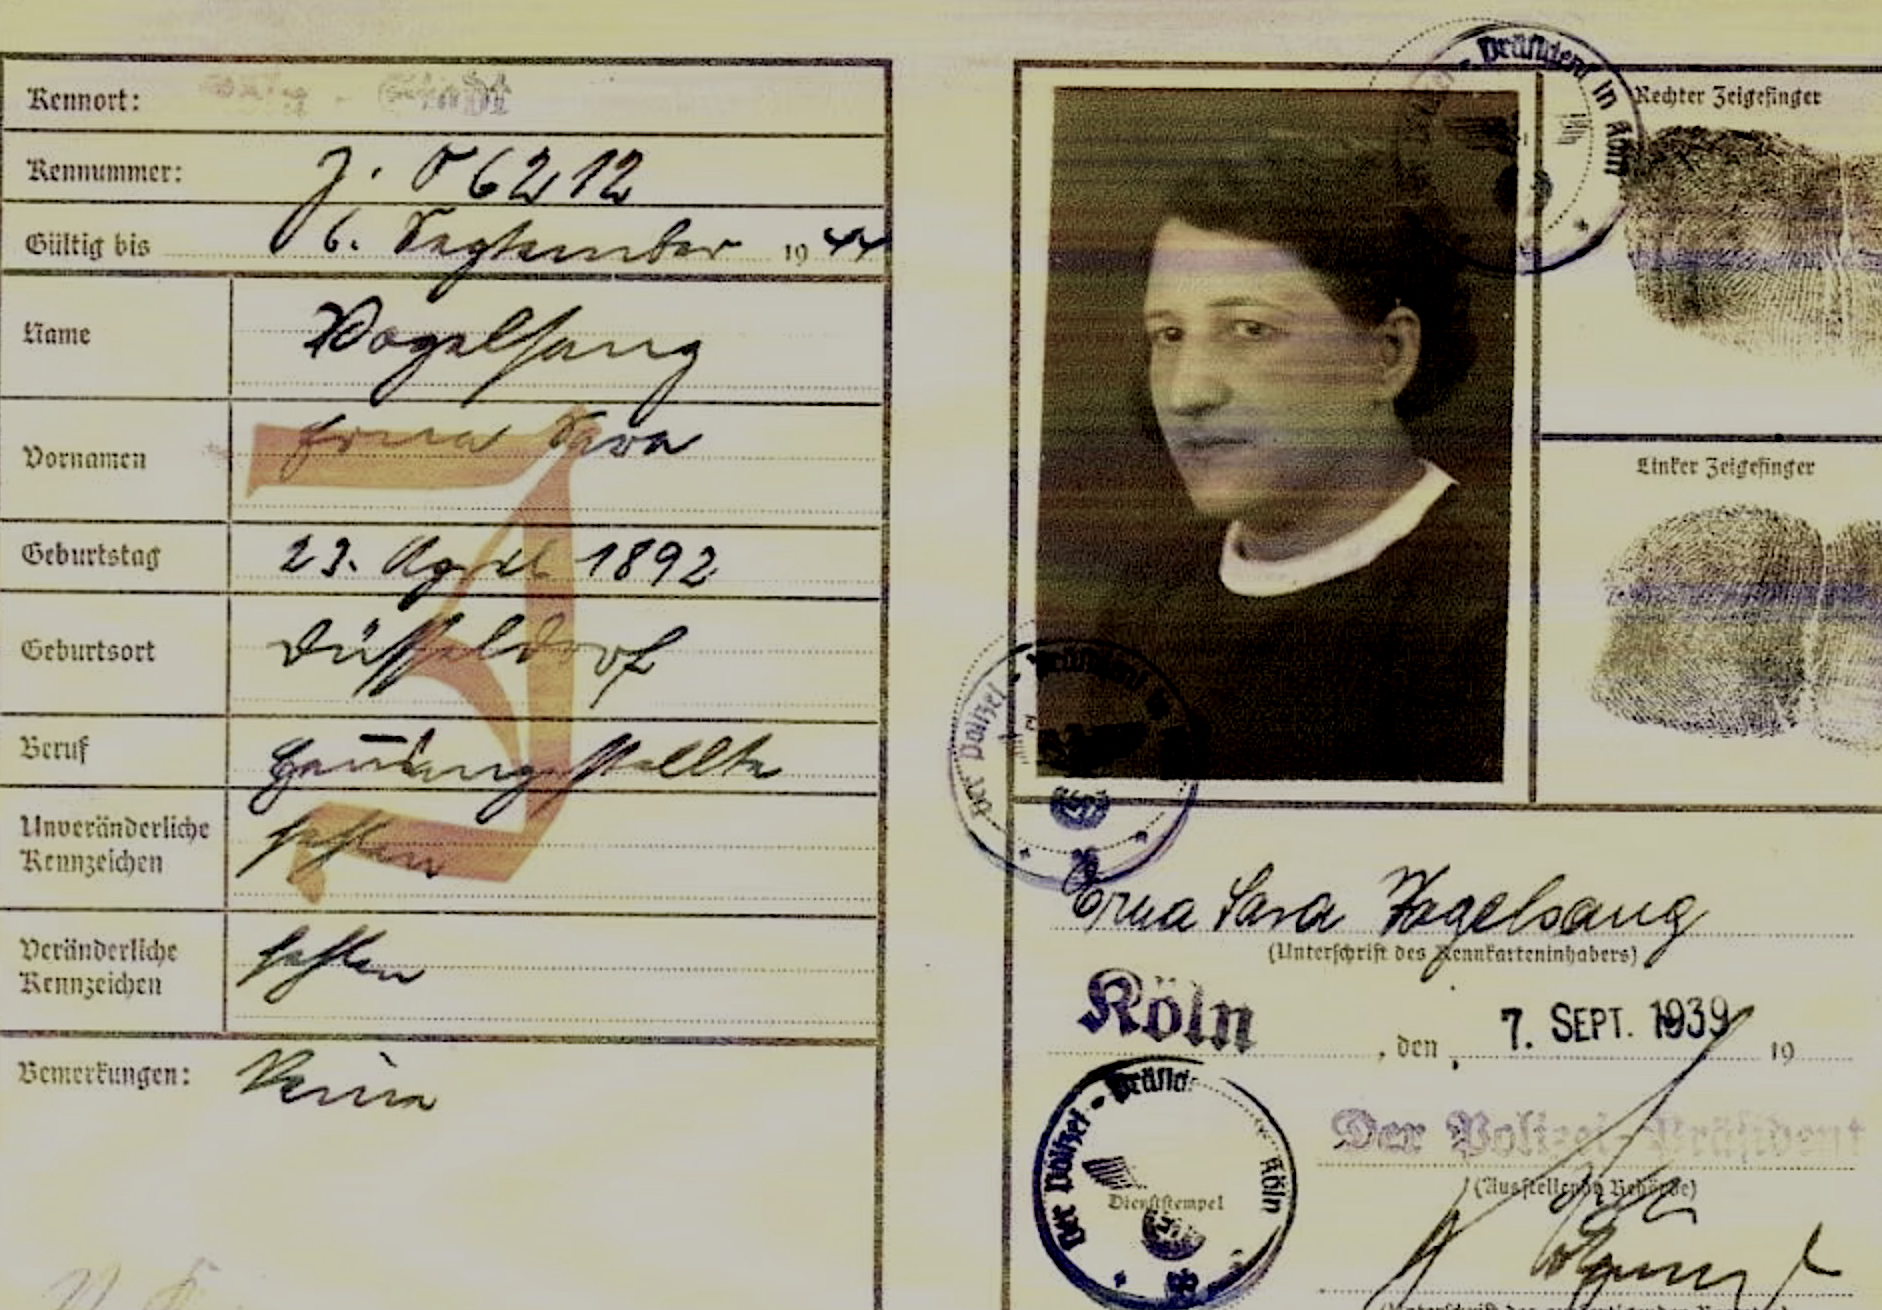 Kennort: Köln - Stadt
Kennummer: J. 06212
Gültig bis 6. September 1944
Name Vogelsang
Vornamen Erna Sara
Geburtstag 23. April 1892
Geburtsort Düsseldorf
Beruf Hausangestellte
Unveränderliche Kennzeichen fehlen
Veränderliche Kennzeichen fehlen
Bemerkungen: Keine
J
Rechter Zeigefinger
Linker Zeigefinger
Der Polizei-Präsident in Köln
Der Polizei-Präsident in
Erna Sara Vogelsang
(Unterschrift des Kennkarteninhabers)
Köln, den 7. SEPT. 1939 19
Der Polizei-Präsident
(Ausstellende Behörde)
Der Polizei-Präsid Köln
Dienststempel